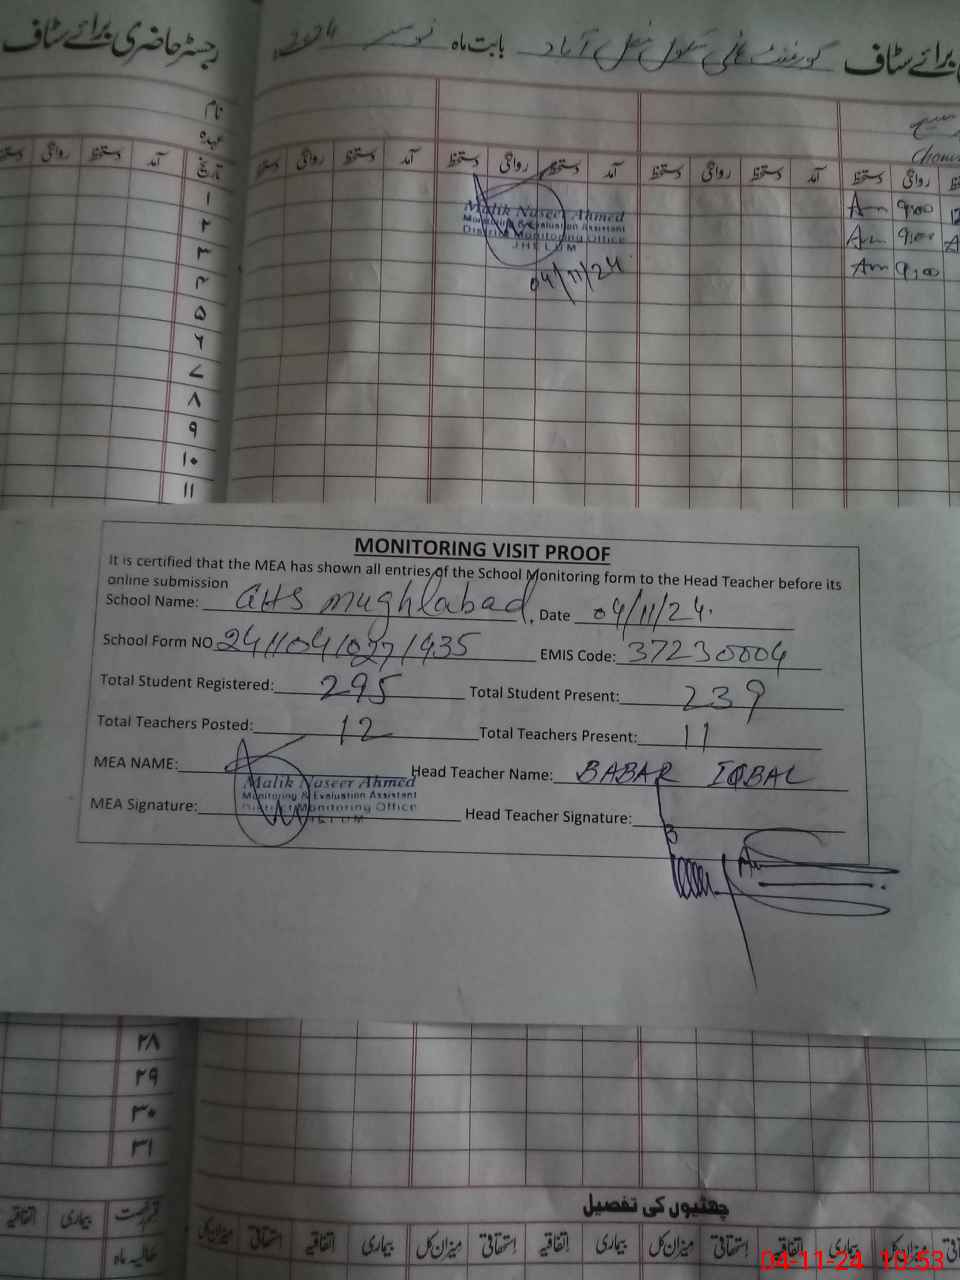 رجسٹر حاضری برائے سٹاف
برائے سٹاف گورنمنٹ ہائی سکول مغل آباد بابت ماہ نومبر 2024
نام
عہدہ
تاریخ آمد دستخط روانگی دستخط
آمد دستخط روانگی دستخط آمد دستخط روانگی دستخط آمد دستخط روانگی دستخط
۱
۲
۳
۴
۵
۶
۷
۸
۹
۱۰
۱۱
Am 9:00
Am 9:00
Am 9:00
Malik Naseer Ahmed
Monitoring & Evaluation Assistant
District Monitoring Office
JHELUM
04/11/24
MONITORING VISIT PROOF
It is certified that the MEA has shown all entries of the School Monitoring form to the Head Teacher before its
online submission
School Name: GHS Mughlabad, Date 04/11/24.
School Form NO 241104/027/435 EMIS Code: 37230004
Total Student Registered: 295 Total Student Present: 239
Total Teachers Posted: 12 Total Teachers Present: 11
MEA NAME: Malik Naseer Ahmed Head Teacher Name: BABAR IQBAL
Monitoring & Evaluation Assistant
District Monitoring Office
JHELUM
MEA Signature: Head Teacher Signature:
۲۸
۲۹
۳۰
۳۱
چھٹیوں کی تفصیل
قسم رخصت بیماری اتفاقیہ
میزان کل استحقاقی اتفاقیہ بیماری میزان کل استحقاقی اتفاقیہ بیماری میزان کل استحقاقی اتفاقیہ بیماری میزان کل
حالیہ ماہ
04-11-24 10:53